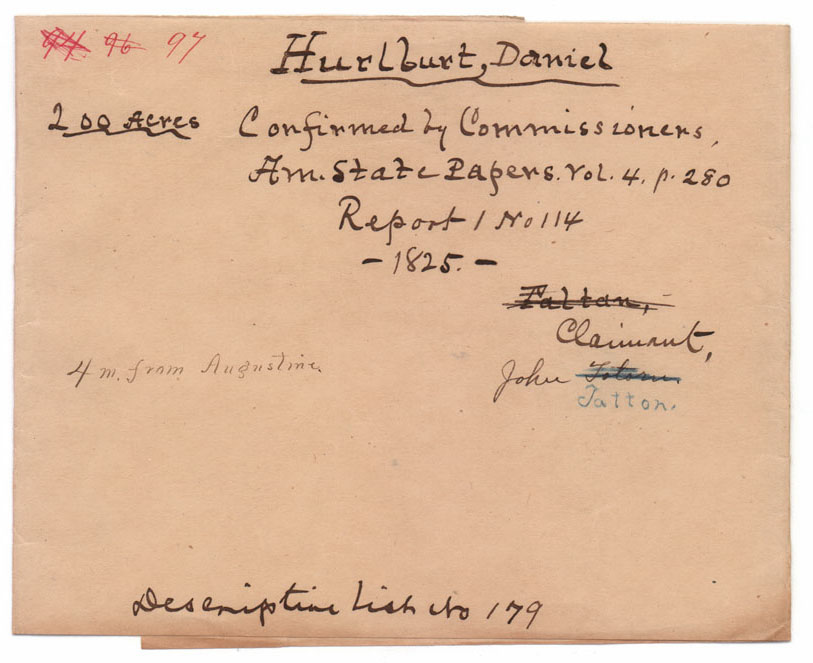 94 96 97
Hurlburt, Daniel
200 Acres Confirmed by Commissioners,
Am. State Papers. Vol. 4. p. 280
Report 1 No 114
- 1825. -
Faltan,
Claimant,
4 m. from Augustine.
John
Tatton.
Descriptive List No 179